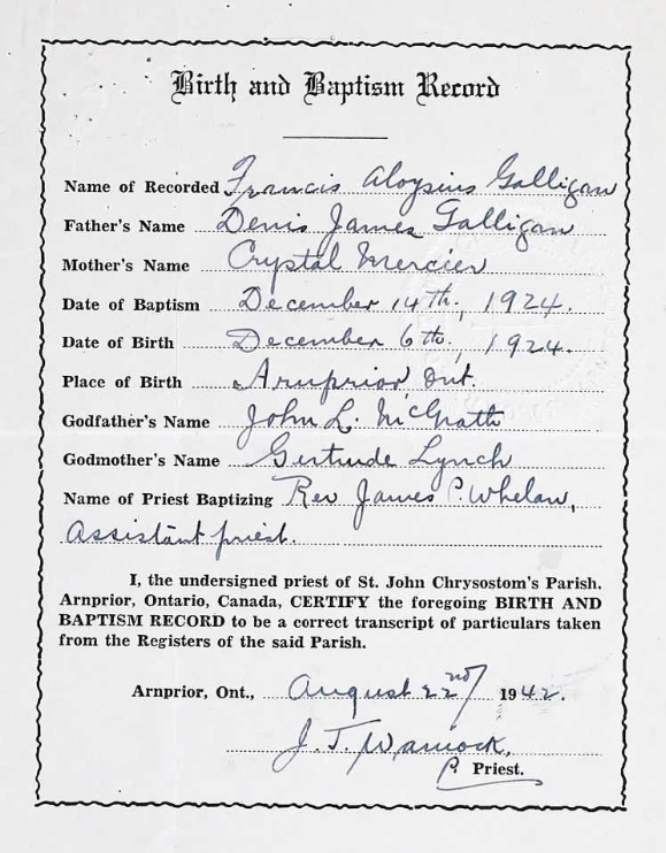 Birth and Baptism Record
Name of Recorded Francis Aloysius Galligan
Father's Name Denis James Galligan
Mother's Name Crystal Mercier
Date of Baptism December 14th, 1924.
Date of Birth December 6th, 1924.
Place of Birth Arnprior, Ont.
Godfather's Name John L. McGrath
Godmother's Name Gertrude Lynch
Name of Priest Baptizing Rev James P. Whelan,
Assistant priest.
I, the undersigned priest of St. John Chrysostom's Parish,
Arnprior, Ontario, Canada, CERTIFY the foregoing BIRTH AND
BAPTISM RECORD to be a correct transcript of particulars taken
from the Registers of the said Parish.
Arnprior, Ont., August 22nd/ 1942.
J. T. Warnock,
P. Priest.